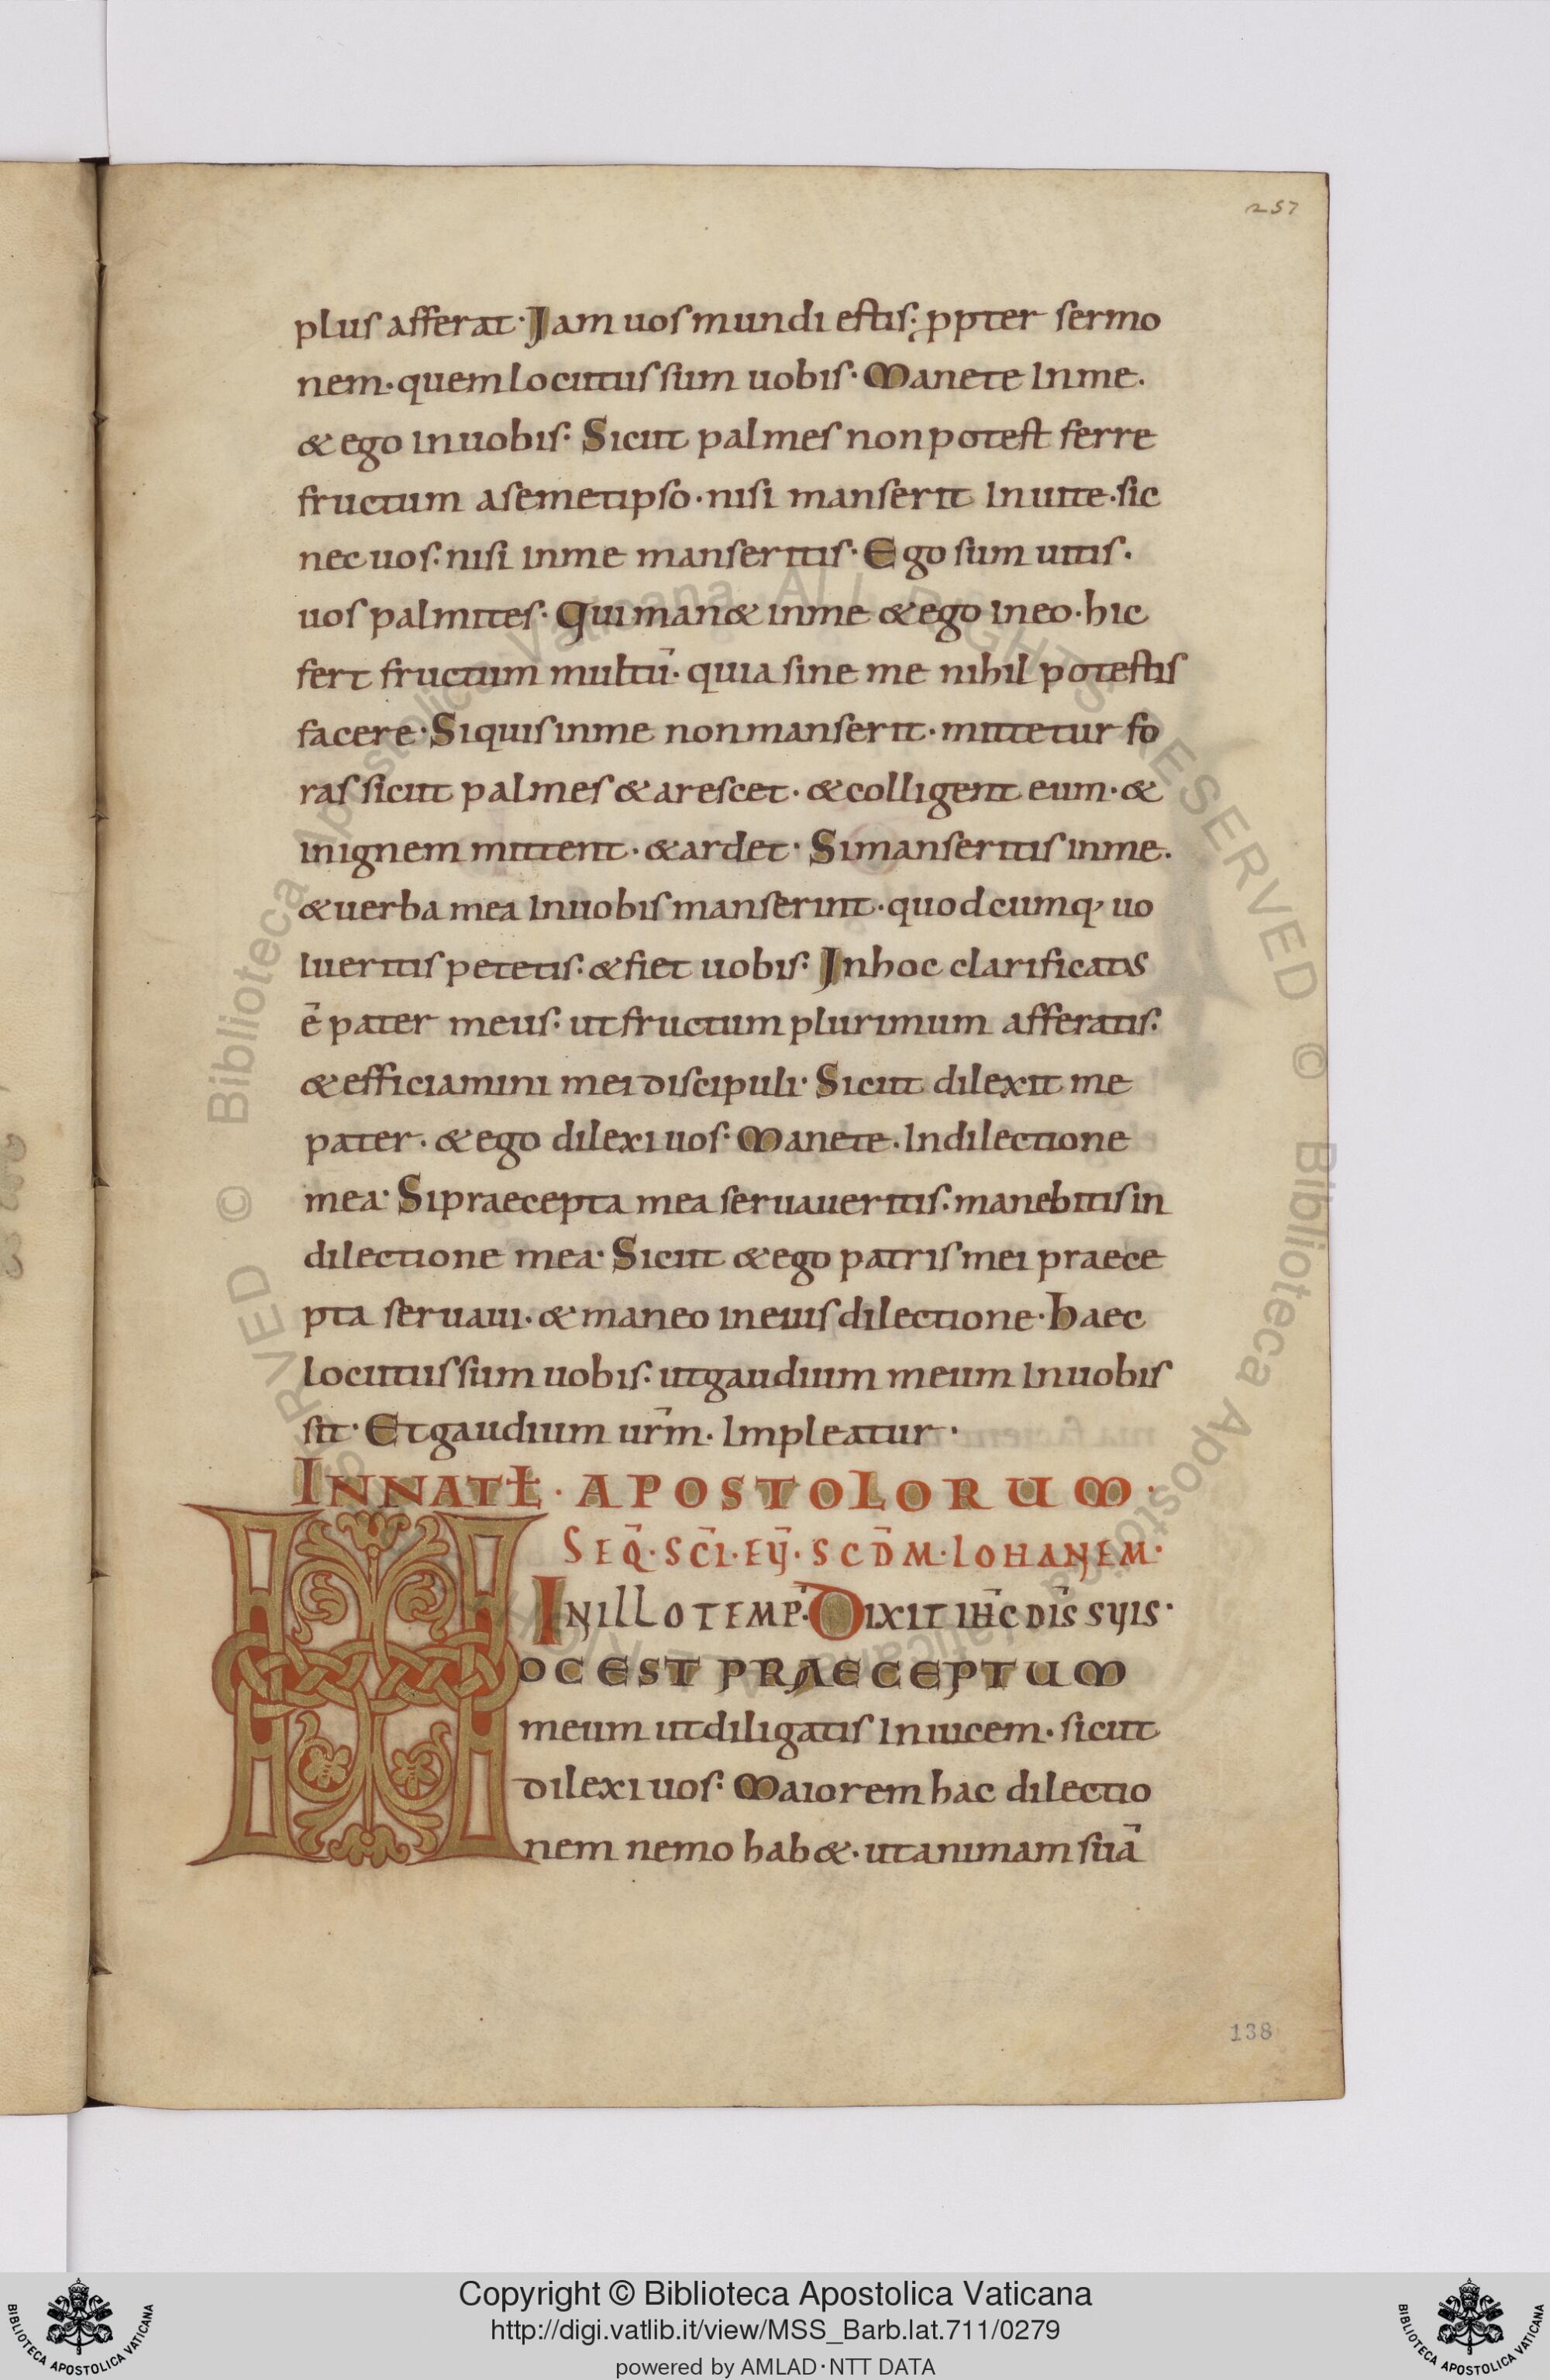 257
plus afferat· Jam uos mundi estis: ꝓpter sermo
nem· quem locutus sum uobis· Manete Inme.
& ego Inuobis: Sicut palmes nonpotest ferre
fructum asemetipso· nisi manserit Inuite· sic
nec uos: nisi Inme manseritis· Ego sum uitis.
uos palmites· Qui man& inme & ego Ineo· hic
fert fructum multū· quia sine me nihil potestis
facere· Siquis inme non manserit· mittetur fo
ras sicut palmes & arescet· & colligent eum· &
inignem mittent· & ardet· Simanseritis inme.
& uerba mea Inuobis manserint· quodcumq; uo
lueritis petetis: & fiet uobis: Jnhoc clarificatus
ē pater meus: ut fructum plurimum afferatis:
& efficiamini mei discipuli· Sicut dilexit me
pater· & ego dilexi uos: Manete· Indilectione
mea· Sipraecepta mea seruaueritis: manebitis in
dilectione mea· Sicut & ego patris mei praece
pta seruaui· & maneo ineius dilectione· haec
locutus sum uobis: utgaudium meum Inuobis
sit· Et gaudium ur̄m· Impleatur·
INNATŁ· APOSTOLORUM·
SEQ̄· SC̄I· EῩ· SCD̄M· IOHANEM·
INILLO TEMP̄· DIXIT IH̄C DIS̄ SYIS·
HOC EST PRAECEPTUM
meum utdiligatis Inuicem· sicut
dilexi uos: Maiorem hac dilectio
nem nemo hab&· utanimam suā
138
© Biblioteca Apostolica Vaticana ALL RIGHTS RESERVED © Biblioteca Apostolica Vaticana ALL RIGHTS RESERVED
Copyright © Biblioteca Apostolica Vaticana
http://digi.vatlib.it/view/MSS_Barb.lat.711/0279
powered by AMLAD·NTT DATA
BIBLIOTECA APOSTOLICA VATICANA
BIBLIOTECA APOSTOLICA VATICANA